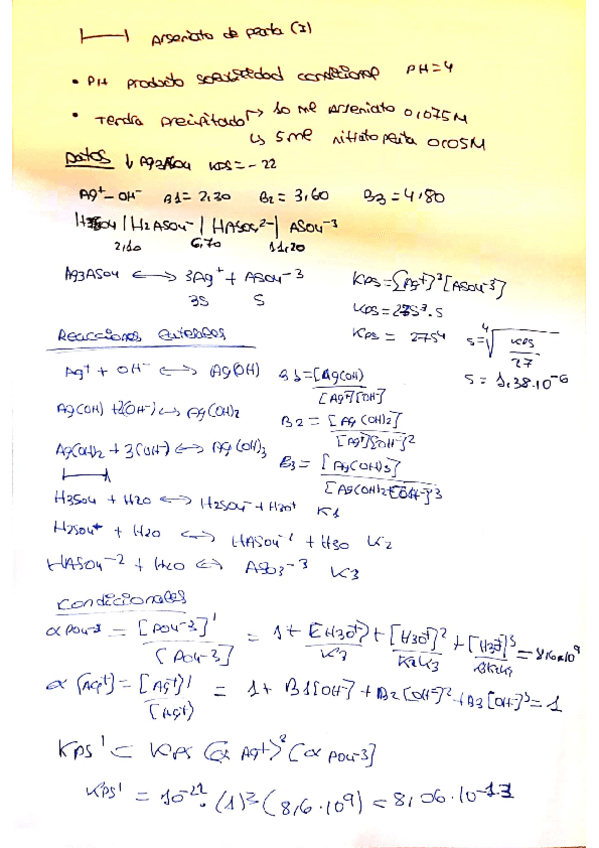 Arseniato de plata (I)
• PH producto solubilidad condicional PH=4
• Tendra precipitado → 10 ml Arseniato 0,075M
↳ 5 ml nitrato plata 0,05M
Datos ↓ Ag3AsO4 KPS=-22
Ag+-OH- B1=2,30 B2=3,60 B3=4,80
H3SO4 | H2ASO4- | HASO4 2-| ASO4-3
2,10 6,70 11,20
Ag3ASO4 ⟷ 3Ag+ + ASO4-3
3S S
KPS=[Ag+]3[ASO4-3]
KPS=27S3.S
KPS = 27S4 S=4√KPS/27
S = 1,38.10-6
Reacciones
Ag+ + OH- ⟷ Ag(OH) B1=[Ag(OH)]/[Ag+][OH]
Ag(OH) +2(OH-) ⟷ Ag(OH)2 B2=[Ag(OH)2]/[Ag+][OH-]2
Ag(OH)2 + 3(OH-) ⟷ Ag(OH)3 B3=[Ag(OH)3]/[Ag(OH)2][OH-]3
H3SO4 + H2O ⟷ H2SO4- + H3O+ K1
H2SO4+ + H2O ⟷ HASO4-2 + H3O K2
HASO4-2 + H2O ⟷ ASO3-3 K3
Condicionales
αPO4-3 = [PO4-3]'/[PO4-3] = 1+[H3O+]/K3+[H3O+]2/K2K3+[H3O+]3/ =
α[Ag+]=[Ag+]'/[Ag+] = 1+B1[OH-]+B2[OH-]2+B3[OH-]3=1
KPS' = KPS (αAg+)3[αPO4-3]
KPS' = 10-22.(1)3(8,6.10 9)=8,06.10-13